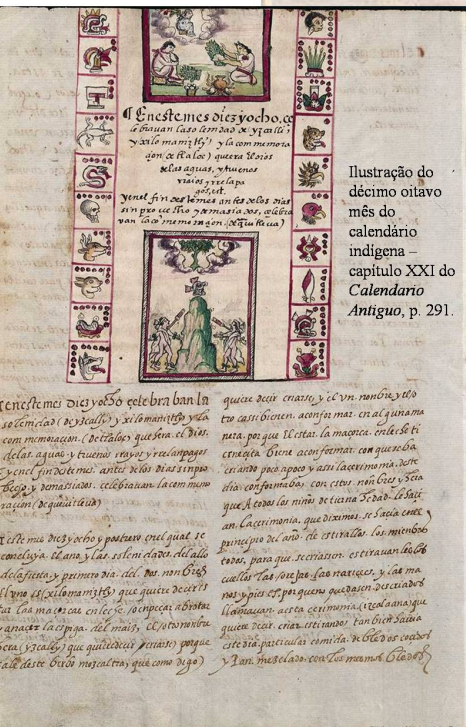 ¶ En este mes diez y ocho, ce
lebravan la solemdad de yzcalli,
y xilomaniztli y la commemora
çion de tlaloc que era el dios
de las aguas, y truenos
rayos y relapa
gos, etc.
y en el fin deste mes antes de los dias
sin provecho y demasiados, celebra
van la comemoraçion. de quitleva)
Ilustração do
décimo oitavo
mês do
calendário
indígena –
capítulo XXI do
Calendario
Antiguo, p. 291.
En este mes diez y ocho çelebraban la
solenidad (de yzcally) y xilomaniztly y la
commemoracion (de tlaloc) que era el dios
de las aguas y truenos rrayos y rrelanpagos
y en el fin deste mes. antes de los dias sin pro
becho y demassiados. celebravan la commemo
raçion (de quiuitleua)
este mes diez y ocho y postrero en el qual se
concluya. el ano y las solenidades. del
de la fiesta y primero dia. del. dos. nonbres
el uno es (xilomaniztly) que quiere decir es
tar las maçorcas en leche. o enpeçar a brotar
y a naçer la espiga. del maiz, el otro nonbre
era (yzcally) que quiere decir criarse) porque
sale deste birbo mozcaltia) que como digo)
quiere decir criarse, y el un nonbre y el o
tro cassi bienen. a conformar. en alguna ma
nera. por que el estar. la maçorca. en leche ti
erneçita biene aconformar. con que se ba
criando poco apoco y assi la cerimonia. deste
dia. conformaba. con estos. nonbres y
que A todos los niños de tierna edad. les haçi
an la cerimonia. que diximos. se haçia en el
principio del ano. de estirallos. los mienbros
todos, para que. se criasen. estiravanles los
cuellos las orejas. las nariçes, y las ma
nos y pies por que no quedasen. descriados
llamavan. a esta cerimonia (yzcalaana) que
quiere decir. criar. estirando) tanbien havia
este dia. particular comida. de bledos coçidos
y pan. mezclado. con los mesmos bledos